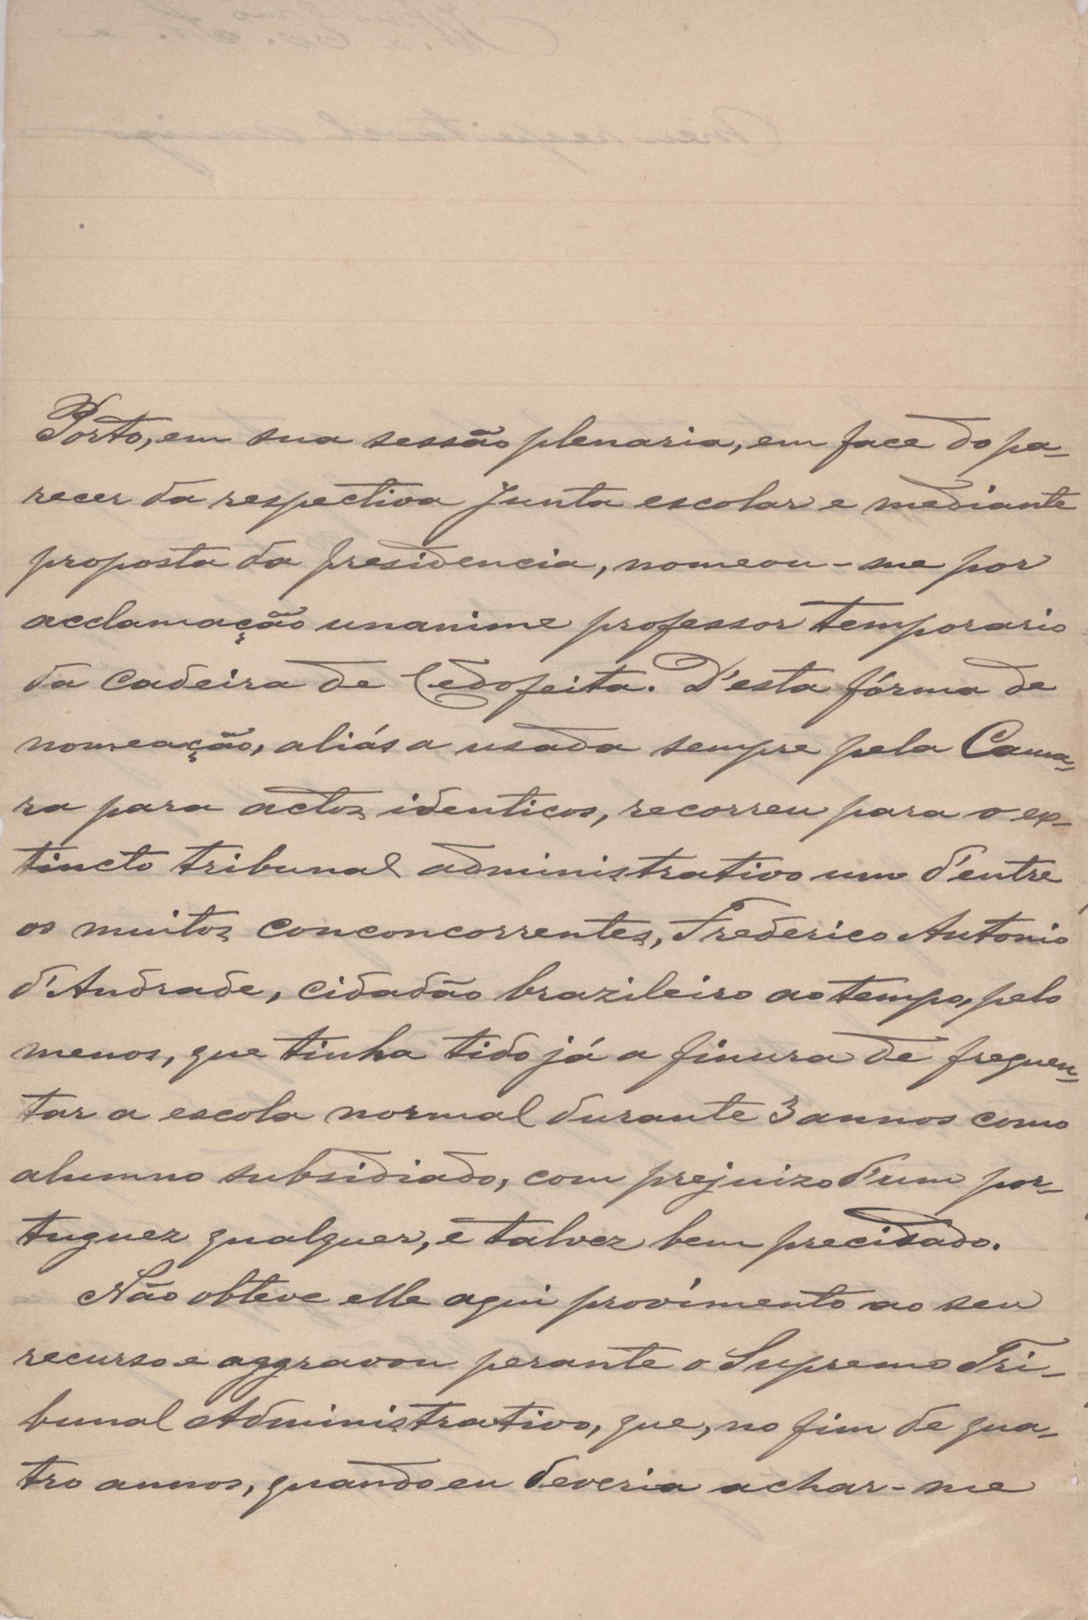 Porto, em sua sessão plenaria, em face do pa-
recer da respectiva Junta escolar e mediante
proposta da presidencia, nomeou-me por
acclamação unanime professor temporario
da cadeira de Cedofeita. D'esta fórma de
nomeação, aliás a usada sempre pela Cama-
ra para actos identicos, recorreu para o ex-
tincto tribunal administrativo um d'entre
os muitos conconcorrentes, Frederico Antonio
d'Andrade, cidadão brazileiro ao tempo, pelo
menos, que tinha tido já a finura de frequen-
tar a escola normal durante 3 annos como
alumno subsidiado, com prejuizo d'um por-
tuguez qualquer, e talvez bem precisado.
Não obteve elle aqui provimento ao seu
recurso e aggravou perante o Supremo Tri-
bunal Administrativo, que, no fim de qua-
tro annos, quando eu deveria achar-me